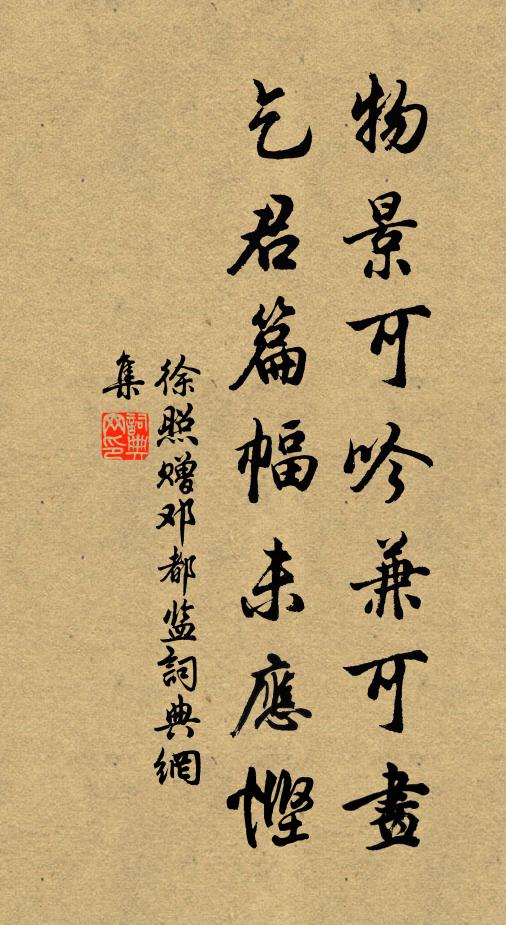 物景可吟兼可畫
乞君篇幅未應慳
徐照赠邓都监詞典網
集
詞典
网印